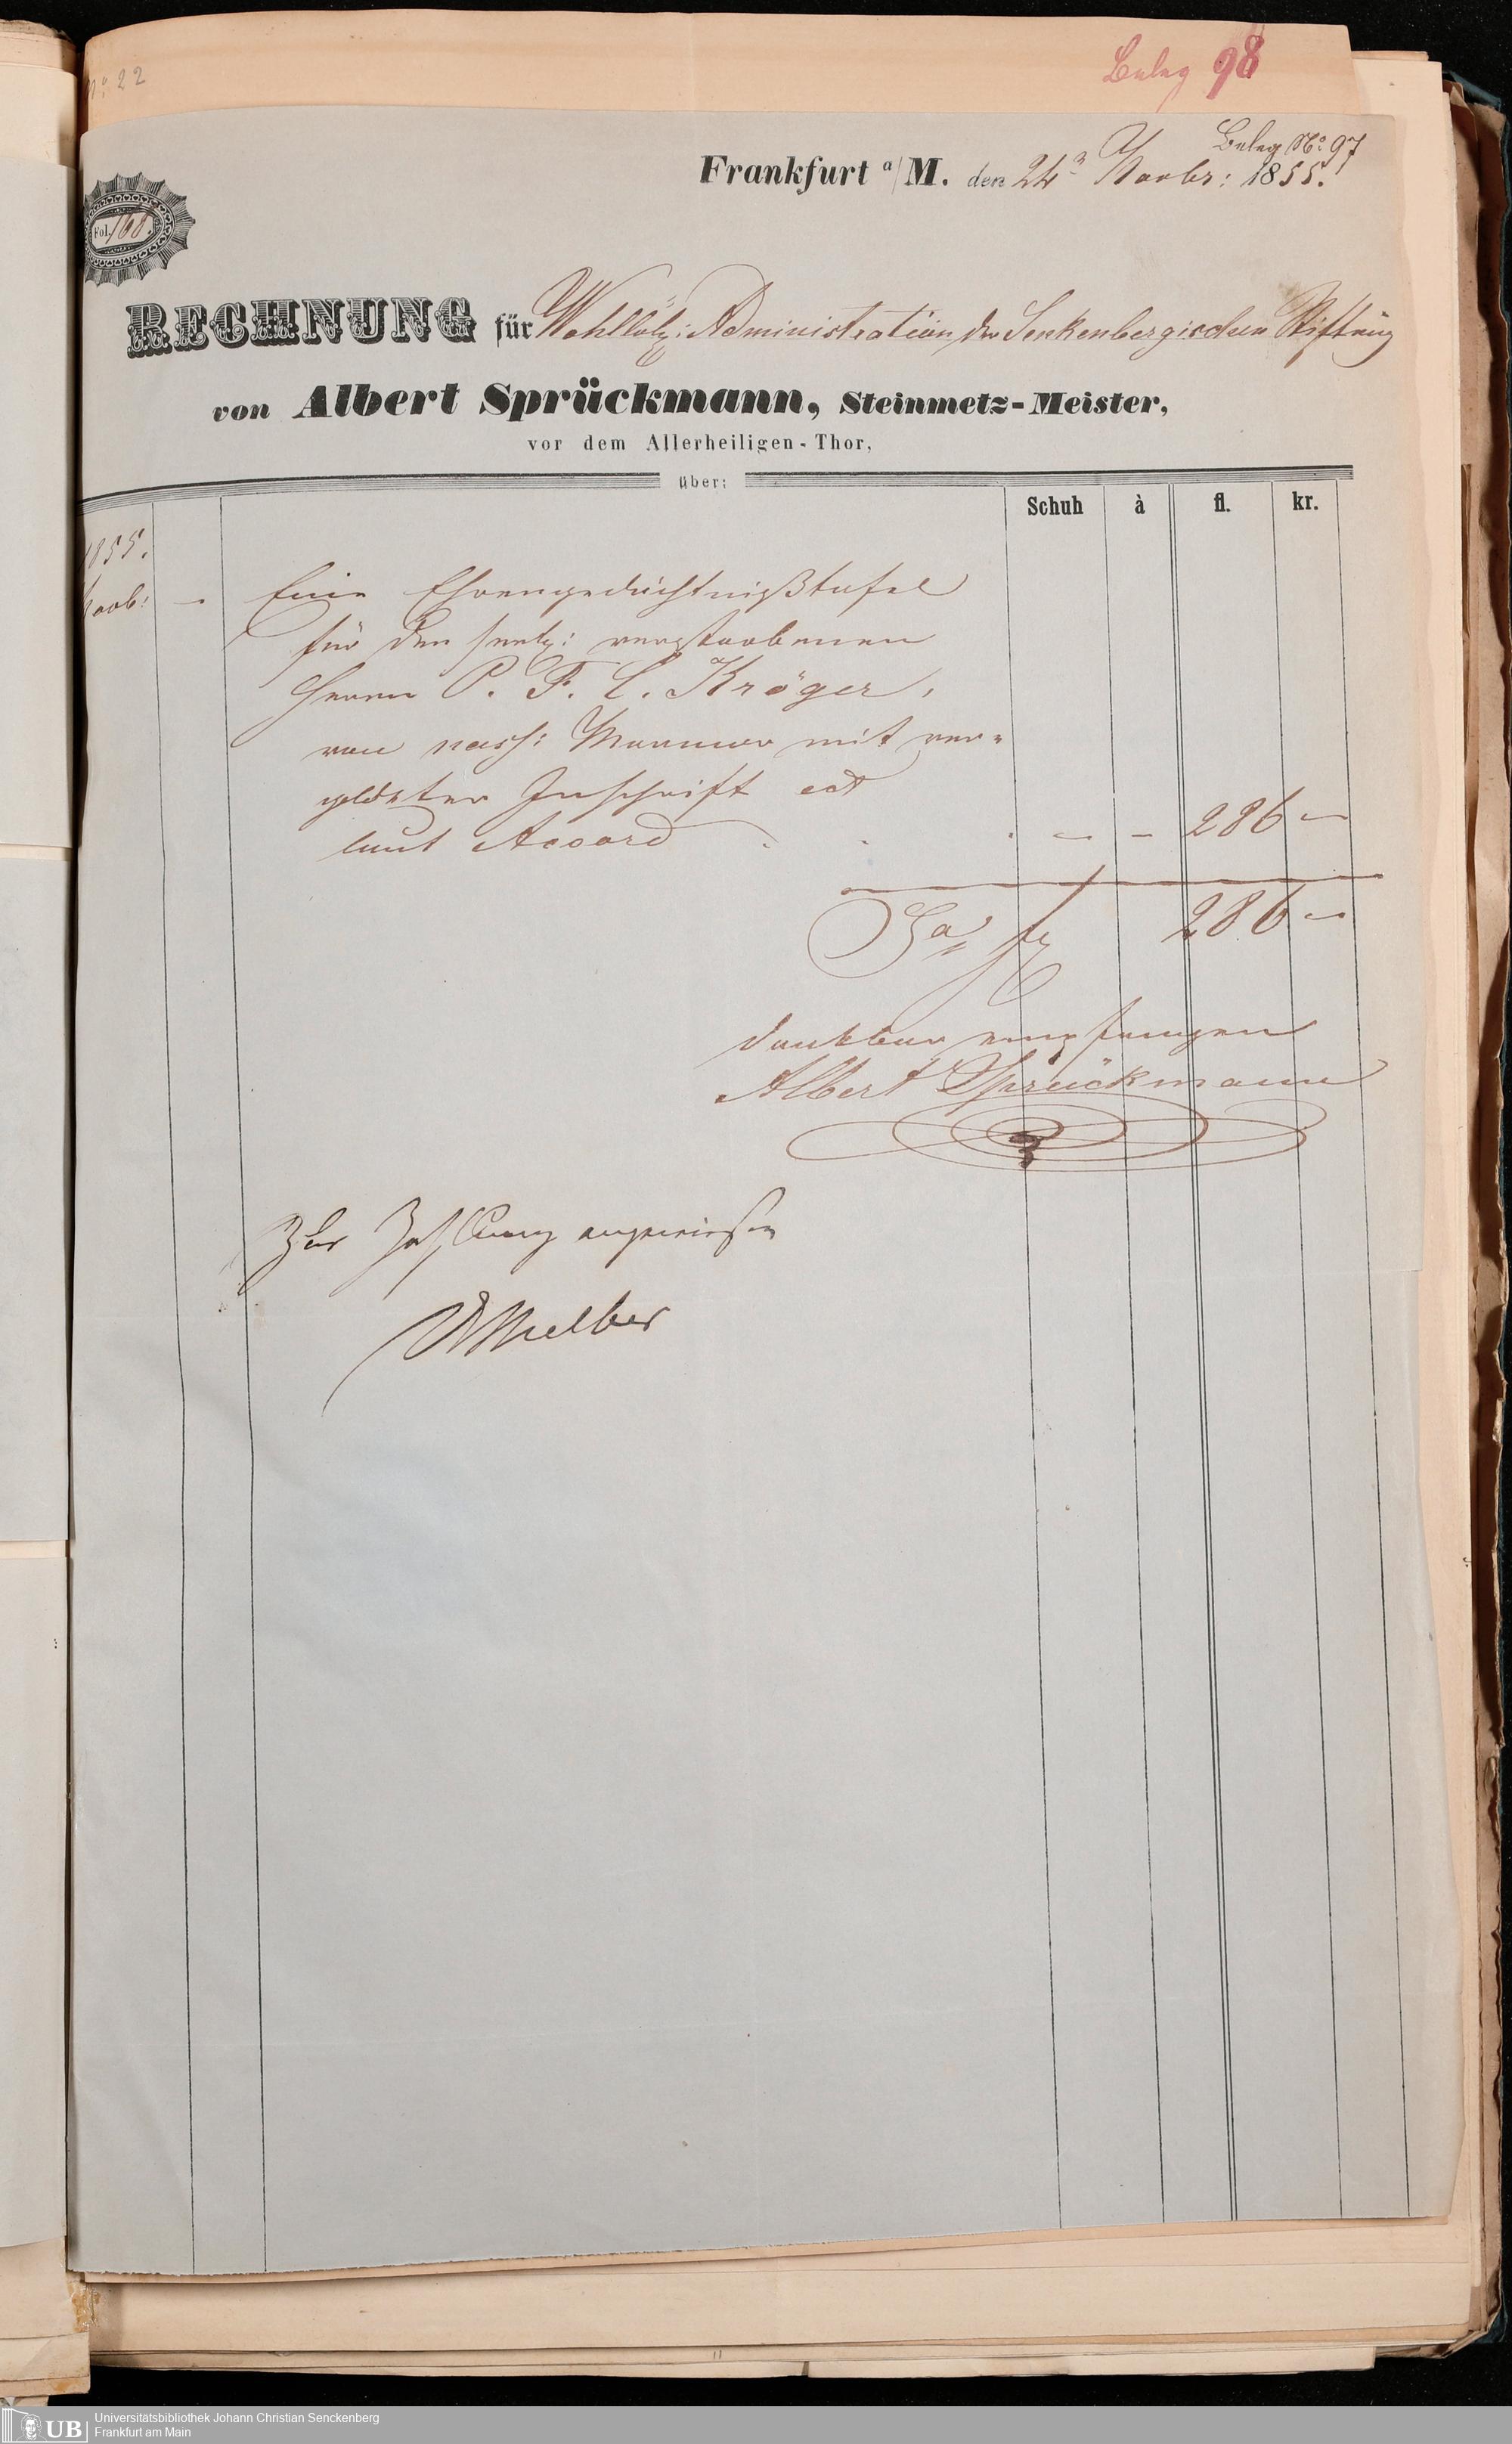 No 22
Beleg 98
Beleg No 97
Frankfurt a/M. den 24n Novbr: 1855.
Fol. 168.
RECHNUNG für Wohllöbl: Administration der Senkenbergischen Stiftung
von Albert Sprückmann, Steinmetz-Meister,
vor dem Allerheiligen-Thor,
über:
Schuh à fl. kr.
1855.
Novb: - Eine Ehrengedächtnißtafel
für den seel: verstorbenen
Herrn P. F. C. Kröger,
von nass: Marmor mit ver-
goldeter Inschrift ect
laut Accord . . . — — 286 —
Sa fl 286 —
dankbar empfangen
Albert Sprückmann
Zur Zahlung angewiesen
Dr Melber
UB
Universitätsbibliothek Johann Christian Senckenberg
Frankfurt am Main